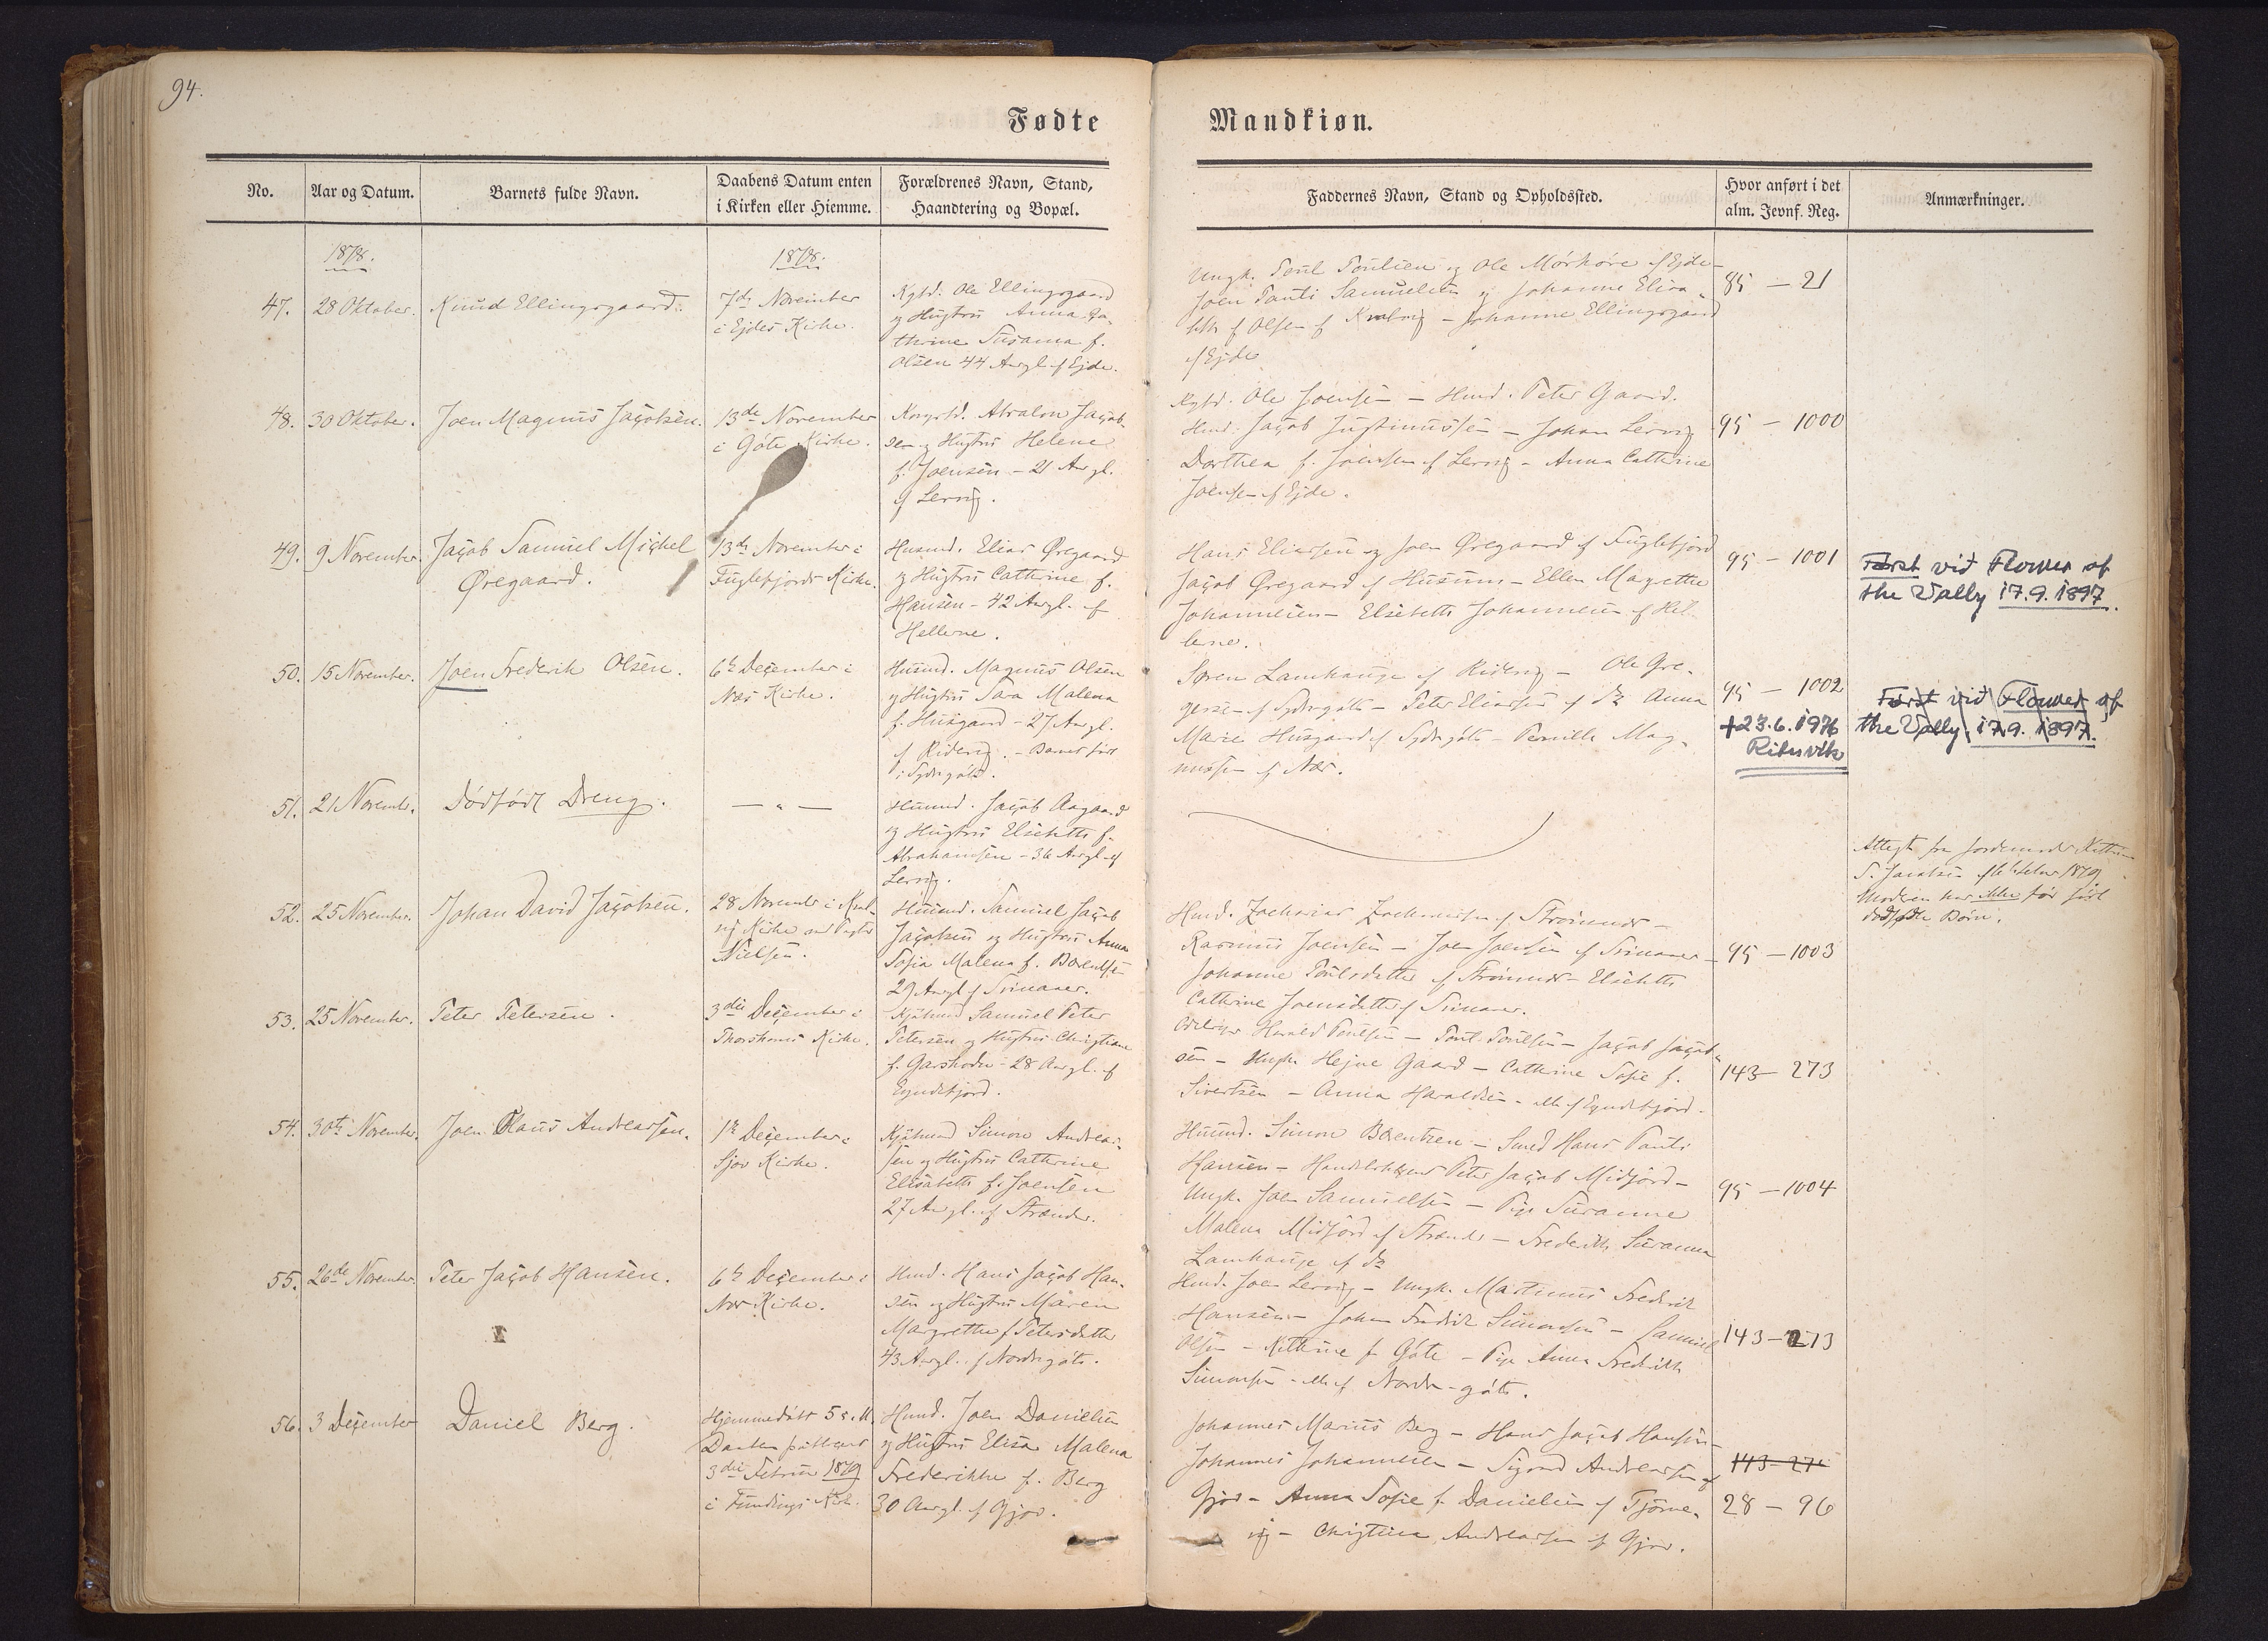 94.
Fødte
Mandkiøn.
No.
Aar og Datum.
Barnets fulde Navn.
Daabens Datum enten
i Kirken eller Hiemme.
Forældrenes Navn, Stand,
Haandtering og Bopæl.
Faddernes Navn, Stand og Opholdssted.
Hvor anført i det
alm. Jevnf. Reg.
Anmærkninger.
1878.
1878.
47.
28 Oktober.
Knud Ellingsgaard.
7de November
i Ejdes Kirke.
Kgbd. Ole Ellingsgaard
og Hustru Anna Ca-
thrine Susanna f.
Olsen 44 Aar gl. af Ejde.
Ungk. Poul Poulsen og Ole Mørkøre af Ejde
Joen Pauli Samuelsen og Johanne Elisa-
beth f. Olsen af Kvalvig – Johanne Ellingsgaard
af Ejde
85 – 21
48.
30 Oktober.
Joen Magnus Jacobsen.
13de November
i Göte Kirke.
Kongsbd. Absalon Jacob-
sen og Hustru Helene
f. Joensen – 21 Aar gl.
af Lervig.
Kgbd. Ole Joensen – Husmd. Peter Gaard.
Husmd. Jacob Justinussen – Johan Lervig
Dorthea f. Joensen af Lervig – Anna Cathrine
Joensen af Ejde.
95 – 1000
49.
9 November.
Jacob Samuel Michel
Øregaard.
13de November i
Fuglefjords Kirke.
Husmd. Elias Øregaard
og Hustru Cathrine f.
Hansen – 42 Aar gl. af
Hellerne.
Hans Eliassen og Joen Øregaard af Fuglefjord
Jacob Øregaard af Husum – Ellen Magrethe
Johannesen – Elsebeth Johannesen af Hel-
lerne.
95 – 1001
Førist við Flower of
the Vally 17.9.1897.
50.
15 November.
Joen Frederik Olsen.
6te December i
Næs Kirke.
Husmd. Magnus Olsen
og Hustru Sara Malena
f. Husgaard – 27 Aar gl.
af Ridevig. – Barnet født
i Sydregöte.
Søren Lamhauge af Ridevig – Ole Gre-
gersen af Sydregöte – Peter Eliassen af do Anna
Marie Husgaard af Sydregöte – Pernille Mag-
nussen af Næs.
95 – 1002
+23.6.1976
Rituvík
Førist við Flower of
the Vally 17.9.1897.
51.
21 Novembr.
Dødfødt Dreng.
— " —
Husmd. Jacob Aagaard
og Hustru Elsebeth f.
Abrahamsen – 36 Aar gl. af
Lervig.
Attest fra Jordemoder
S. Jacobsen
Moderen har ikke før født
dødfødte Børn.
52.
25 November.
Johan David Jacobsen.
28 Novembr i Kval-
vig Kirke ved Pastor
Nielsen.
Husmd. Samuel Jacob
Jacobsen og Hustru Anna
Sofia Malena f. Bærentsen
29 Aar gl. af Svinaaer.
Husmd. Zacharias Zachariasen af Strømnæs –
Rasmus Joensen – Joen Joensen af Svinaaer –
Johanne Poulsdatter af Strømnæs – Elsebeth
Cathrine Joensdatter af Svinaaer.
95 – 1003
53.
25 November.
Peter Petersen.
3die December i
Thorshavns Kirke.
Kjøbmd Samuel Peter
Petersen og Hustru Christiane
f. Garshodn – 28 Aar gl. af
Ejndefjord.
Harald Poulsen – Poul Poulsen – Jacob Jacob-
sen – Ungk. Hejne Gaard – Cathrine Sofie f.
Sivertsen – Anna Haraldsen – alle af Ejndefjord.
143 – 273
54.
30te November.
Joen Claus Andreassen.
1te December i
Sjov Kirke.
Kjøbmd Simon Andreas-
sen og Hustru Cathrine
Elisabeth f. Joensen
27 Aar gl. af Strænder.
Husmd. Simon Bærentsen – Smed Hans Pauli
Hansen – Peter Jacob Midfjord –
Ungk. Joen Samuelsen – Pige Susanne
Malena Midfjord af Strænder – Frederikke Susanna
Lamhauge af do
95 – 1004
55.
26de November.
Peter Jacob Hansen.
6te December i
Næs Kirke.
Husmd. Hans Jacob Han-
sen og Hustru Maren
Margrethe f. Petersdatter
43 Aar gl. af Nordregöte.
Husmd. Joen Lervig – Ungk. Martinus Frederik
Hansen – Johan Fredrik Simonsen – Samuel
Olsen – Kathrine f. Göte – Pige Anna Frederikke
Simonsen – alle af Nordregöte.
143 – 273
56.
3 December
Daniel Berg.
Hjemmedøbt 5 s. M.
Daaben publiceret
3die Febrar 1879
i Fundings Kirke.
Husmd. Joen Danielsen
og Hustru Elisa Malena
Frederikke f. Berg
30 Aar gl. af Gjov.
Johannes Marius Berg – Hans Jacob Hansen –
Johannes Johannesen – Sigvard Andreassen af
Gjov – Anna Sofie f. Danielsen af Tjørne-
vig – Christina Andreassen af Gjov.
143 – 274
28 – 96